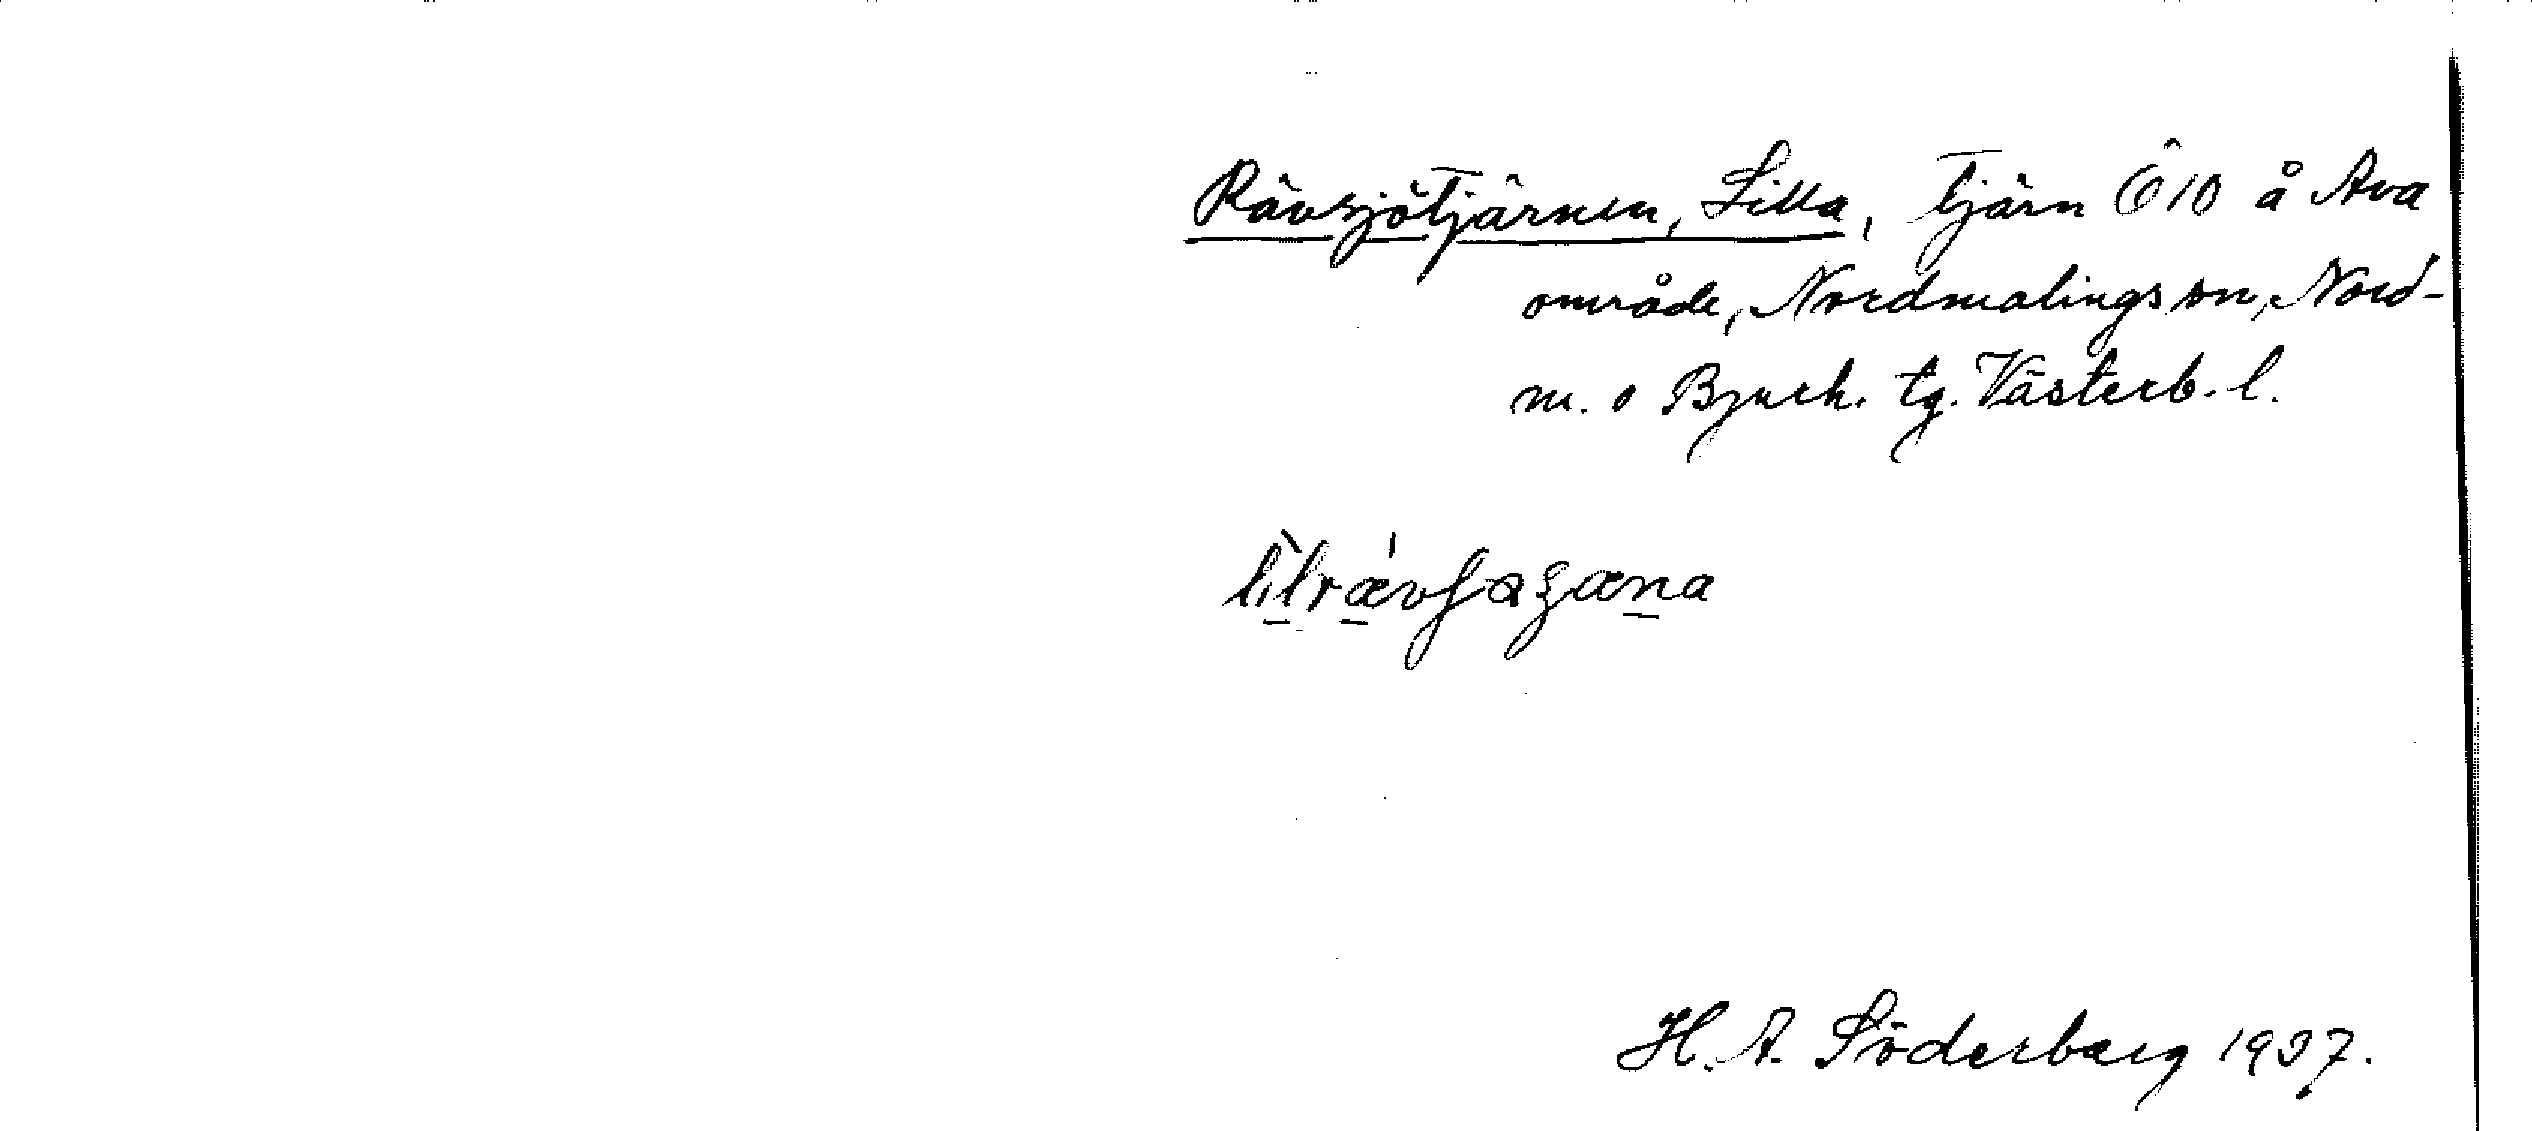 Rävsjötjärnen, Lilla, tjärn Ö10 å Ava
område, Nordmalings sn, Nord-
m. o Bjurh. tg. Västerb. l.
H. A. Söderberg 1937.